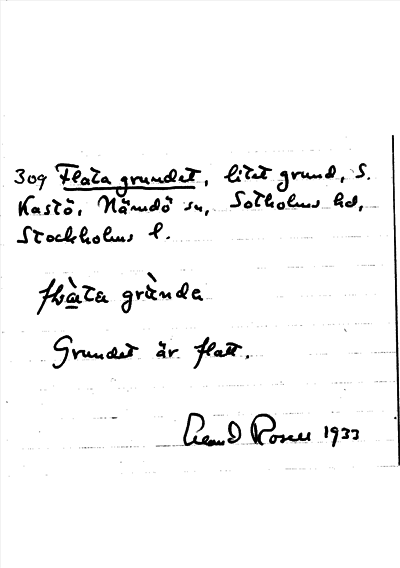 309 Flata grundet, litet grund, S.
Kastö, Nämdö sn, Sotholms hd,
Stockholms l.
flàta grùnda
Grundet är flatt.
Rosell 1933